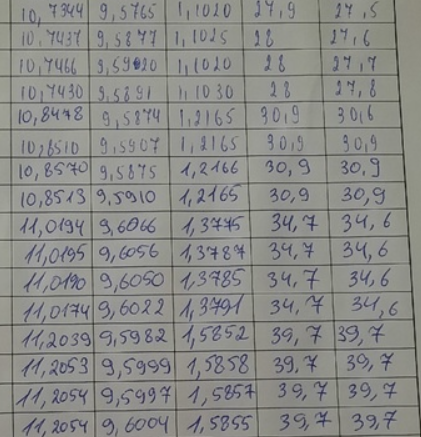 10,7344 9,5765 1,1020 27,9 27,5
10,7437 9,5877 1,1025 28 27,6
10,7466 9,5920 1,1020 28 27,7
10,7430 9,5891 1,1030 28 27,8
10,8478 9,5874 1,2165 30,9 30,6
10,8510 9,5907 1,2165 30,9 30,9
10,8570 9,5875 1,2166 30,9 30,9
10,8513 9,5910 1,2165 30,9 30,9
11,0194 9,6066 1,3775 34,7 34,6
11,0195 9,6056 1,3787 34,7 34,6
11,0190 9,6050 1,3785 34,7 34,6
11,0174 9,6022 1,3791 34,7 34,6
11,2039 9,5982 1,5852 39,7 39,7
11,2053 9,5999 1,5858 39,7 39,7
11,2054 9,5997 1,5857 39,7 39,7
11,2054 9,6004 1,5855 39,7 39,7